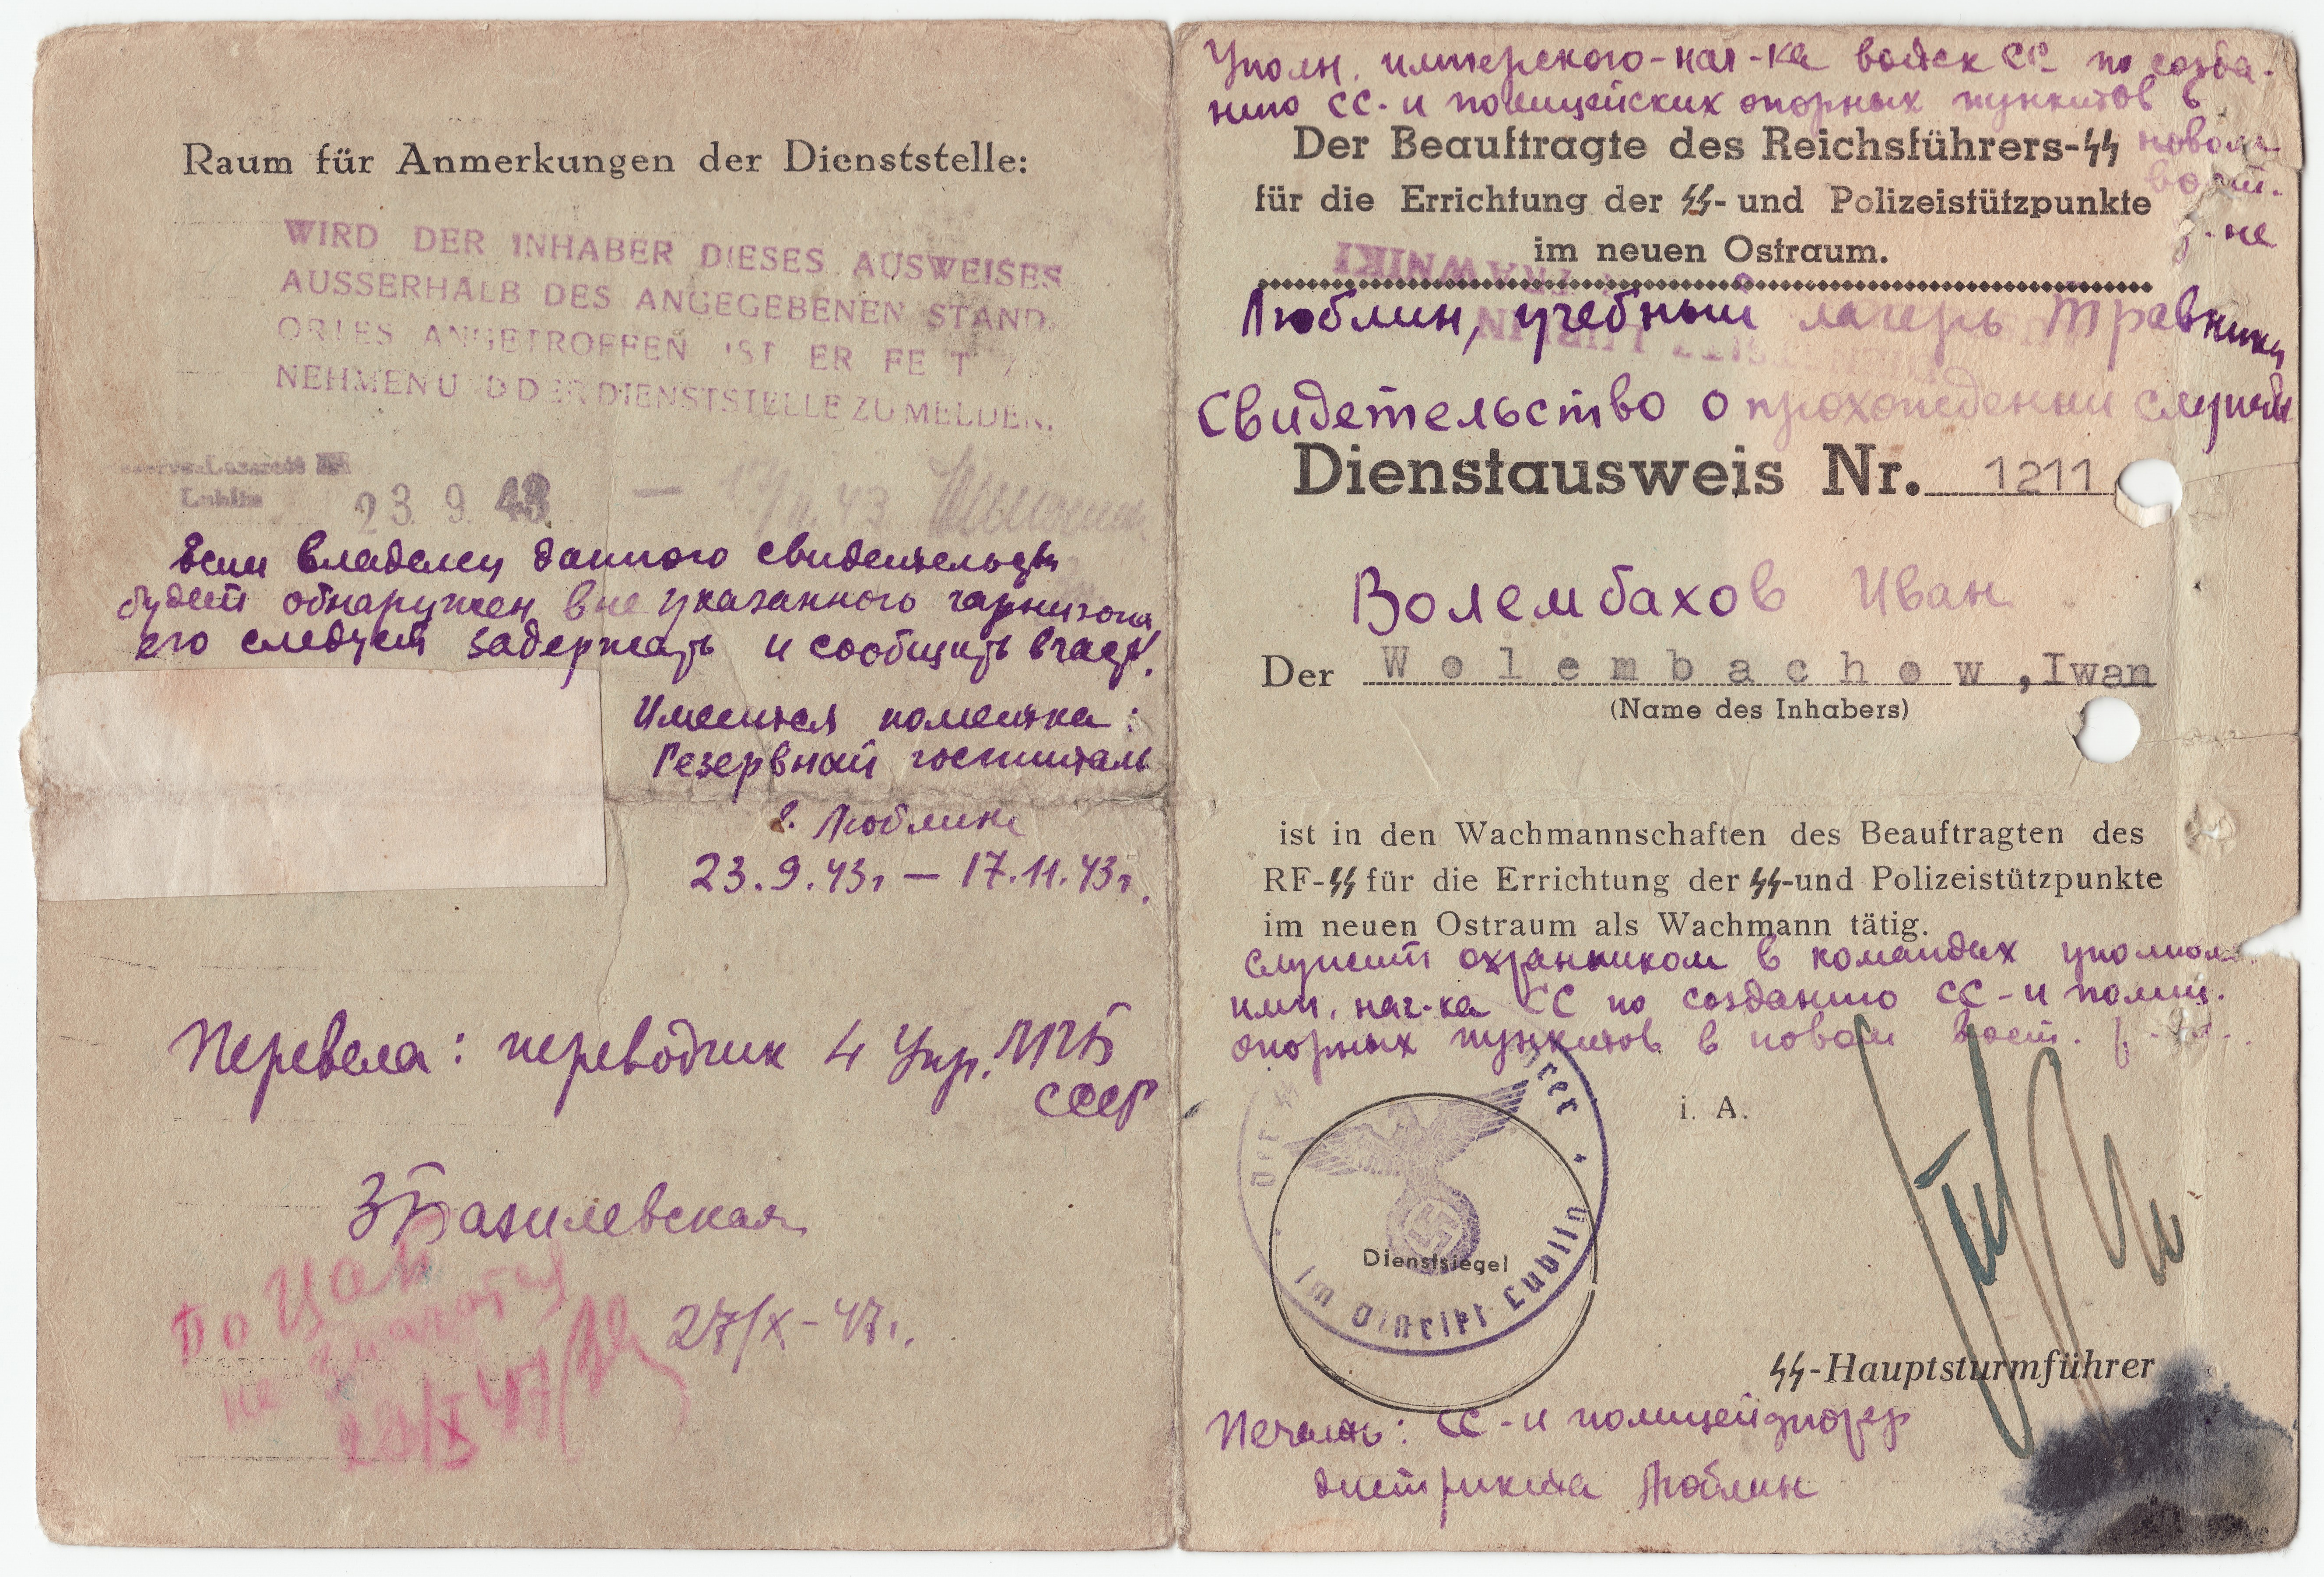 Raum für Anmerkungen der Dienststelle:
WIRD DER INHABER DIESES AUSWEISES
AUSSERHALB DES ANGEGEBENEN STAND
ORTES ANGETROFFEN IST ER FE T
NEHMEN U D DER DIENSTSTELLE ZU MELDEN.
Lublin
23. 9. 43 —
Если владелец данного свидетельств
будет обнаружен вне указанного гарнизона
его следует задержать и сообщить
Имеется пометка:
Резервный госпиталь
г. Люблин
23.9.43г — 17.11.43г.
Перевела: переводчик 4 Упр. МГБ
СССР
ЗБазилевская
27/X-47г.
По
не значится
28/X 47
Уполн. имперского-нач-ка войск СС по созда-
нию СС- и полицейских опорных пунктов в
новом
вост.
Der Beauftragte des Reichsführers-SS
für die Errichtung der SS- und Polizeistützpunkte
im neuen Ostraum.
TRAWNIKI
Люблин, учебный лагерь Травники
Свидетельство о прохождении службы
Dienstausweis Nr. 1211
Волембахов Иван
Der Wolembachow, Iwan
(Name des Inhabers)
ist in den Wachmannschaften des Beauftragten des
RF-SS für die Errichtung der SS-und Polizeistützpunkte
im neuen Ostraum als Wachmann tätig.
служит охранником в командах уполном.
имп. нач-ка СС по созданию СС-и полиц.
опорных пунктов в новом вост.
i. A.
Der SS rer
im Distrikt Lublin
Dienstsiegel
SS-Hauptsturmführer
Печать: СС-и полицейфюрер
дистрикта Люблин